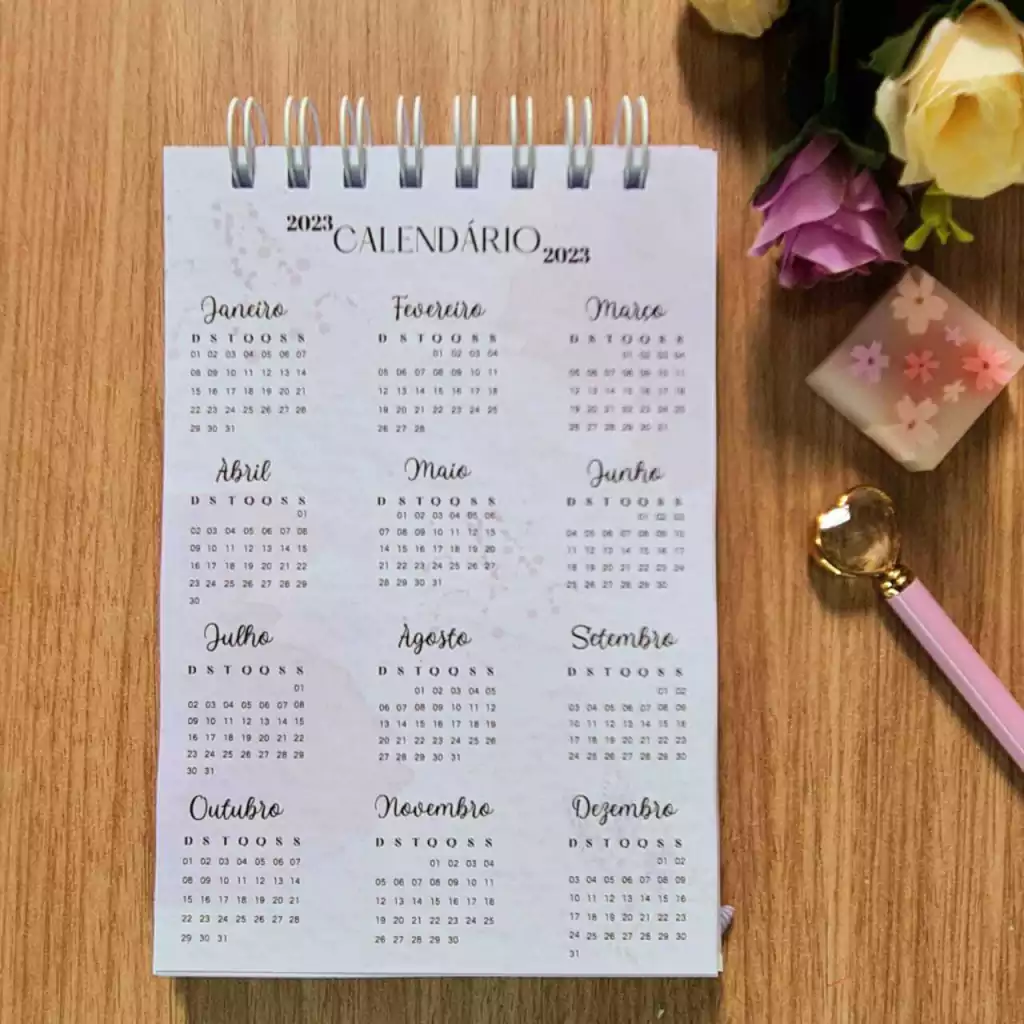 2023 CALENDÁRIO 2023
Janeiro
D S T Q Q S S
01 02 03 04 05 06 07
08 09 10 11 12 13 14
15 16 17 18 19 20 21
22 23 24 25 26 27 28
29 30 31
Fevereiro
D S T Q Q S S
01 02 03 04
05 06 07 08 09 10 11
12 13 14 15 16 17 18
19 20 21 22 23 24 25
26 27 28
Março
D S T Q Q S S
01 02 03 04
05 06 07 08 09 10 11
12 13 14 15 16 17 18
19 20 21 22 23 24 25
26 27 28 29 30 31
Abril
D S T Q Q S S
01
02 03 04 05 06 07 08
09 10 11 12 13 14 15
16 17 18 19 20 21 22
23 24 25 26 27 28 29
30
Maio
D S T Q Q S S
01 02 03 04 05 06
07 08 09 10 11 12 13
14 15 16 17 18 19 20
21 22 23 24 25 26 27
28 29 30 31
Junho
D S T Q Q S S
01 02 03
04 05 06 07 08 09 10
11 12 13 14 15 16 17
18 19 20 21 22 23 24
25 26 27 28 29 30
Julho
D S T Q Q S S
01
02 03 04 05 06 07 08
09 10 11 12 13 14 15
16 17 18 19 20 21 22
23 24 25 26 27 28 29
30 31
Agosto
D S T Q Q S S
01 02 03 04 05
06 07 08 09 10 11 12
13 14 15 16 17 18 19
20 21 22 23 24 25 26
27 28 29 30 31
Setembro
D S T Q Q S S
01 02
03 04 05 06 07 08 09
10 11 12 13 14 15 16
17 18 19 20 21 22 23
24 25 26 27 28 29 30
Outubro
D S T Q Q S S
01 02 03 04 05 06 07
08 09 10 11 12 13 14
15 16 17 18 19 20 21
22 23 24 25 26 27 28
29 30 31
Novembro
D S T Q Q S S
01 02 03 04
05 06 07 08 09 10 11
12 13 14 15 16 17 18
19 20 21 22 23 24 25
26 27 28 29 30
Dezembro
D S T Q Q S S
01 02
03 04 05 06 07 08 09
10 11 12 13 14 15 16
17 18 19 20 21 22 23
24 25 26 27 28 29 30
31